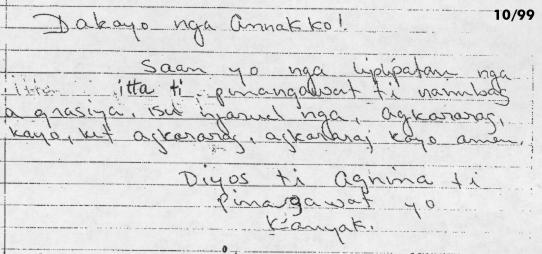 10/99
Dakayo nga Annakko!
Saan yo nga liplipatan nga
itta ti pinangawat ti naimbag
a grasiya, isu ngarud nga, agkararag,
kayo, ket agkararag, agkararag kayo amin.
Diyos ti Agnina ti
pinangawat yo
Kanyak.